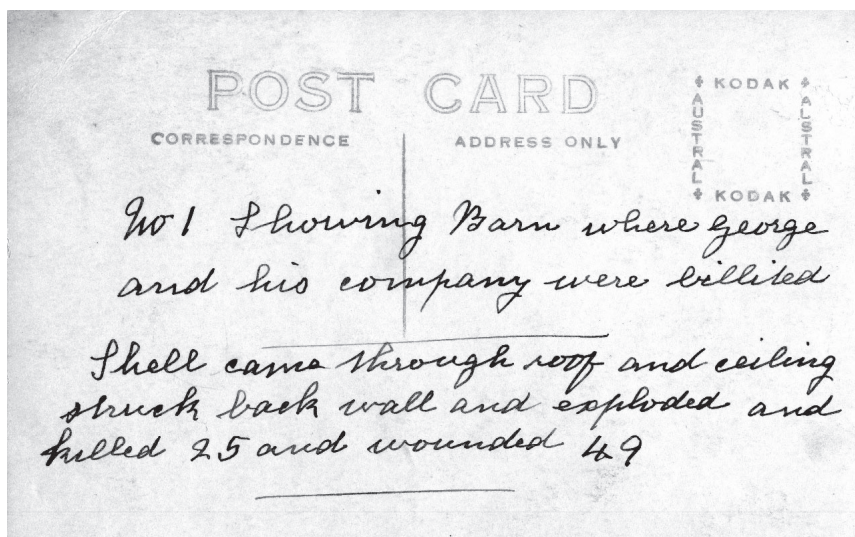 POST CARD
CORRESPONDENCE
ADDRESS ONLY
KODAK
AUSTRAL
AUSTRAL
KODAK
No 1 Showing Barn where George
and his company were billited
Shell came through roof and ceiling
struck back wall and exploded and
killed 25 and wounded 49